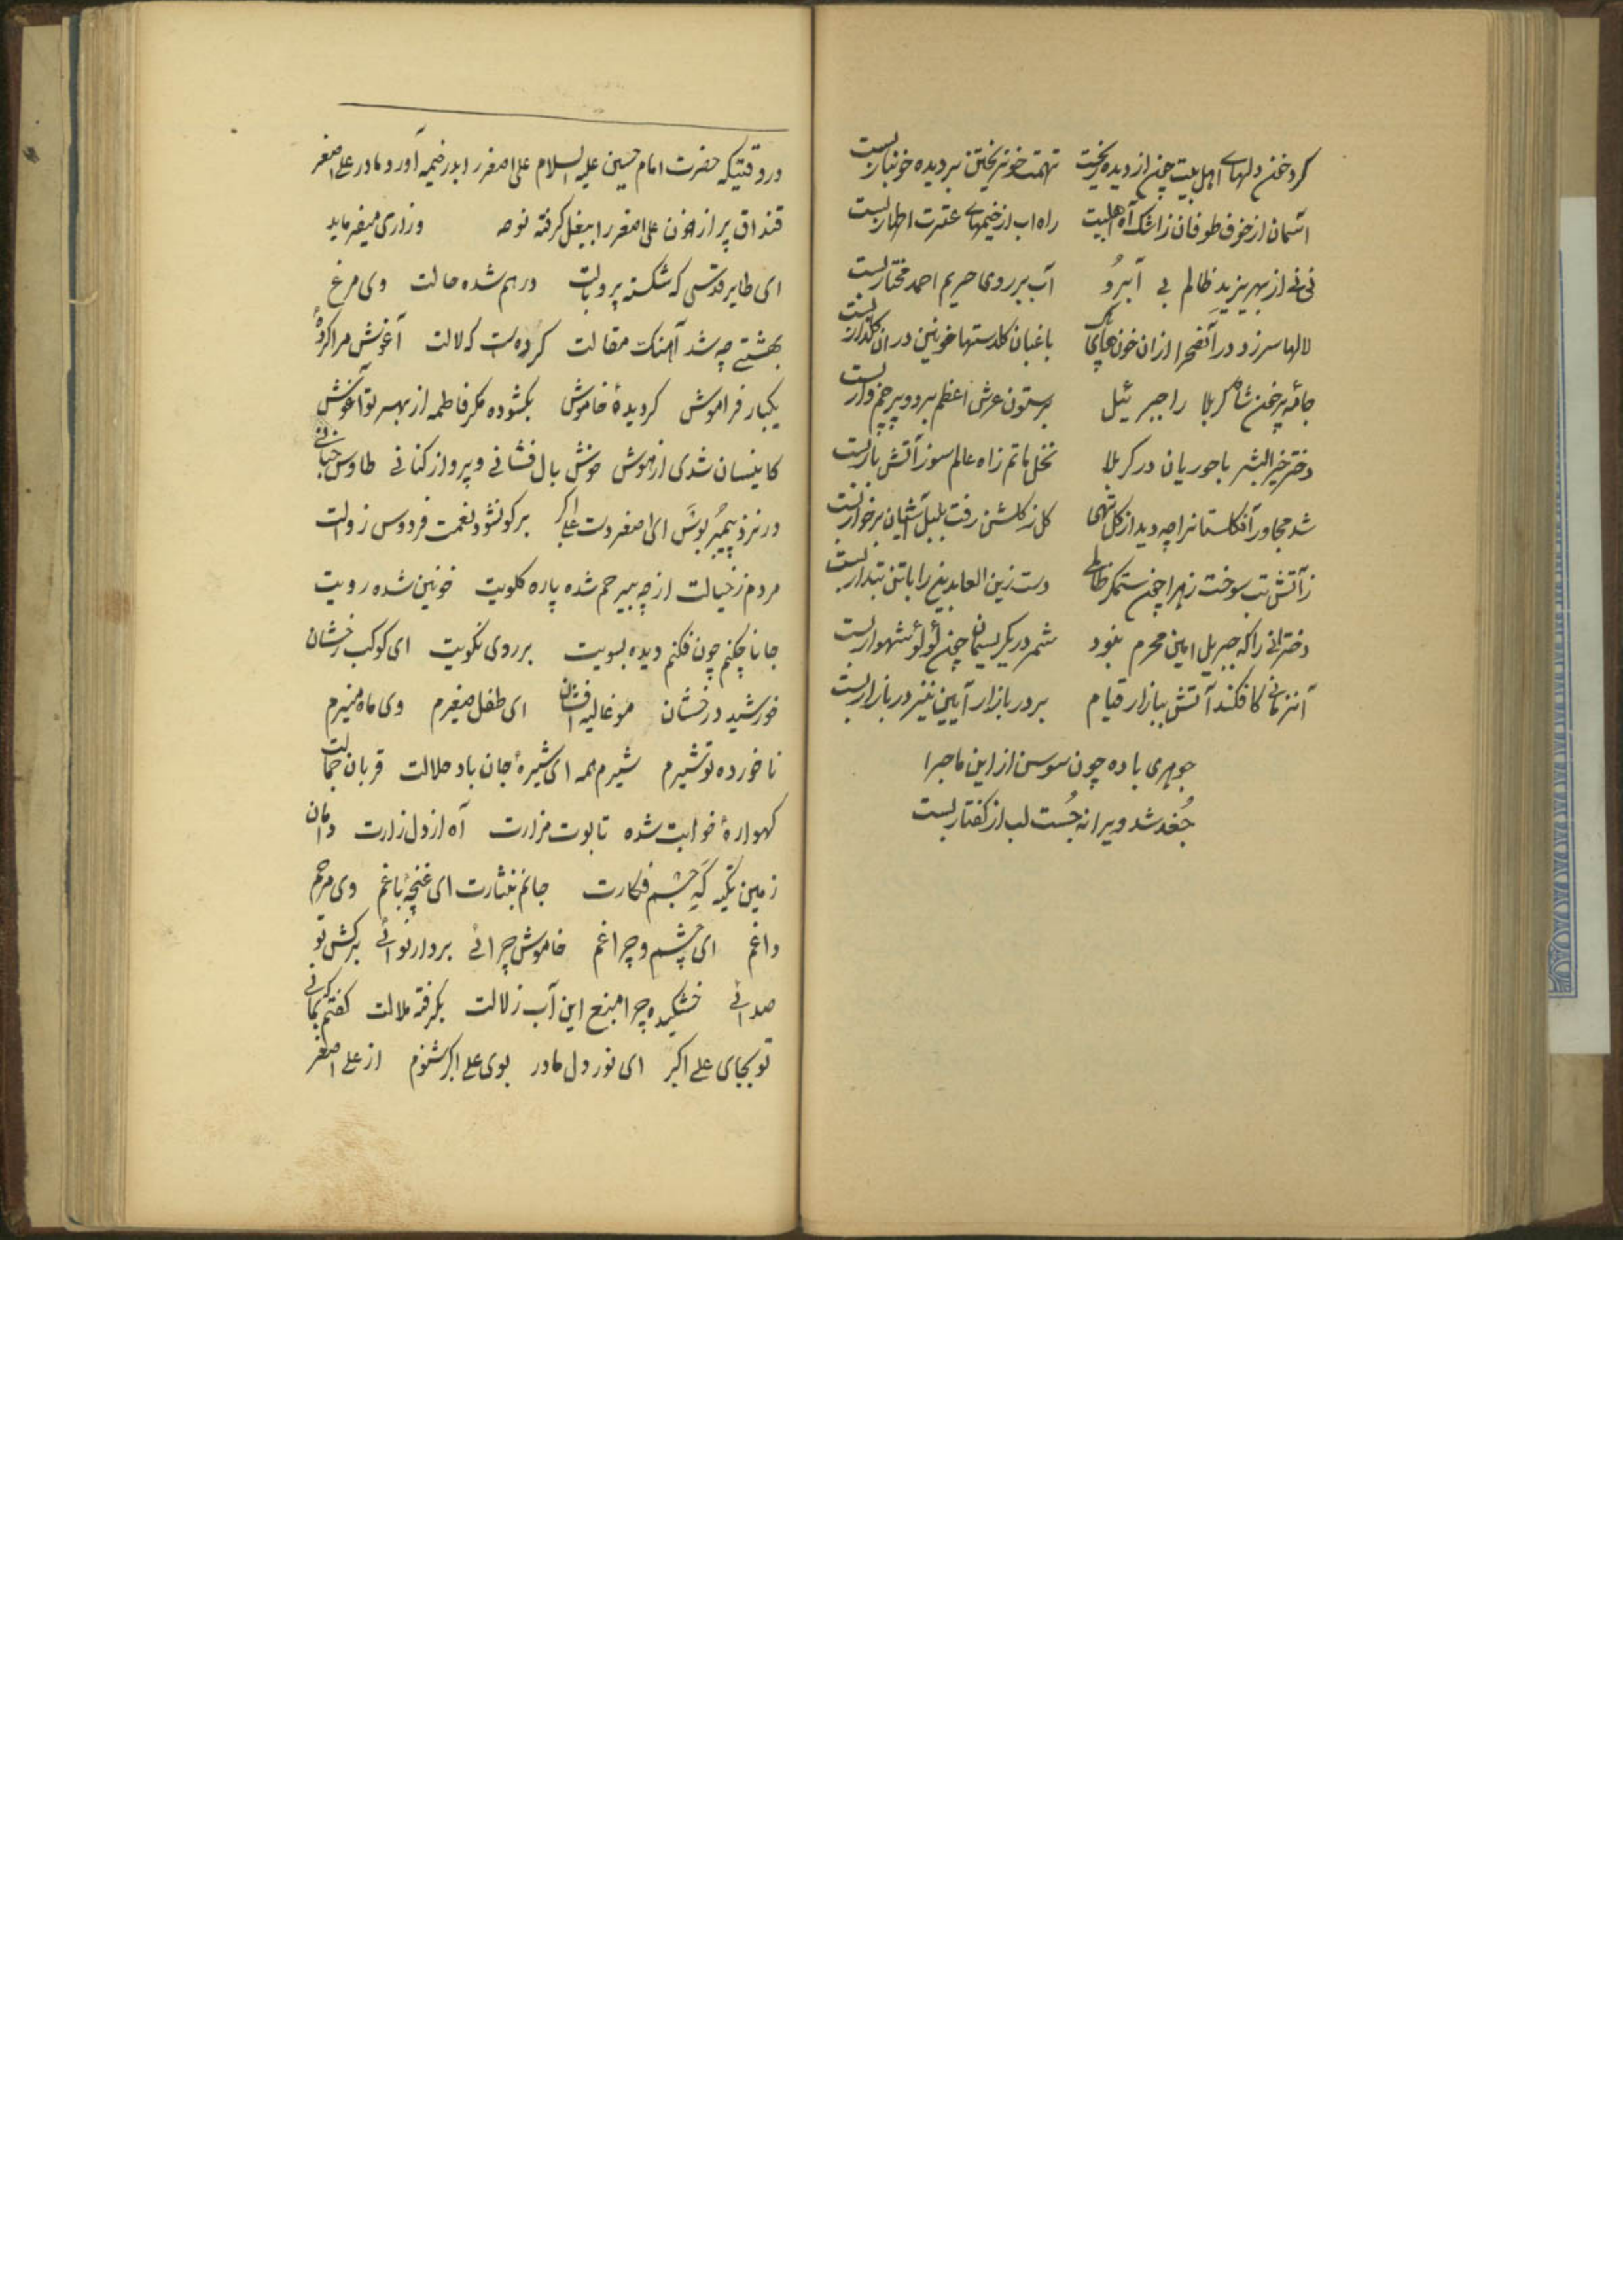 کرد خون دلهای اهل بیت چون از دیده ریخت تهمت خونریختن بر دیده خونبار بست
آسمان از خوف طوفان ز اشک آه اهلبیت راه اب از خیمهای عترت اطهار بست
نی نی از بهر یزید ظالم بی آبرو آب بر روی حریم احمد مختار بست
لالها سر زد در آنصحرا از ان خون باغبان کلدستها خونین در ان کلذار بست
جامه پر خون شاه کربلا را جبرئیل بر ستون عرش اعظم برد و پرچم وار بست
دختر خیر البشر با حوریان در کربلا نخل ماتم ز اه عالم سوز آتش بار بست
شد مجاور آنکلستانرا چه دید از کل تهی کل ز کلشن رفت بلبل آشیان بر خار بست
ز آتش تب سوخت زهرا چون ستمکر ظالمی دست زین العابدین را با تن تبدار بست
دخترانی را که جبریل امین محرم نبود شمر در یکریسمان چون لؤلؤ شهوار بست
آنزمانی کافکند آتش ببازار قیام بر در بازار آیین نیز در بازار بست
جوهری با ده چون سوسن از این ماجرا
جُغد شد ویرانه جُست لب از کفتار بست
در وقتیکه حضرت امام حسین علیه السلام علی اصغر را بدر خیمه آورد مادر علی اصغر
قنداق پر از خون علی اصغر را ببغل کرفته نوحه وزاری میفرماید
ای طایر قدسی که شکسته پر و بالت درهم شده حالت وی مرغ
بهشتی چه شد آهنک مقالت کرده‌ست که لالت آغوش مرا کردهٔ
یکبار فراموش کردیدهٔ خاموش بکشوده مکر فاطمه از بهر تو آغوش
کاینسان شدی از هوش خوش بال فشانی و پرواز کنانی طاوس جنانی
در نزد پیمبر بوَس ای اصغر دست علی اکبر برکو نشود نعمت فردوس زوالت
مردم ز خیالت از چه ببیرحم شده پاره کلویت خونین شده رویت
جانا چکنم چون فکنم دیده بسویت بر روی نکویت ای کوکب رخشان
خورشید درخشان مو غالیه افشان ای طفل صغیرم وی ماه منیرم
ناخورده تو شیرم شیرم همه ای شیرهٔ جان باد حلالت قربان جمالت
کهوارهٔ خوابت شده تابوت مزارت آه از دل زارت دامان
زمین تکیه که جسم فکارت جانم بنثارت ای غنچهٔ باغم وی مرهم
داغم ای چشم و چراغم خاموش چرائی بردار نوائی برکش تو
صدائی خشکیده چرا منبع این آب زلالت بکرفته ملالت کفتم که بمانی
تو بجای علی اکبر ای نور دل مادر بوی علی اکبر شنوم از علی اصغر